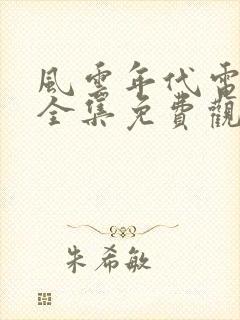 風雲年代電
全集免費觀
朱希敏